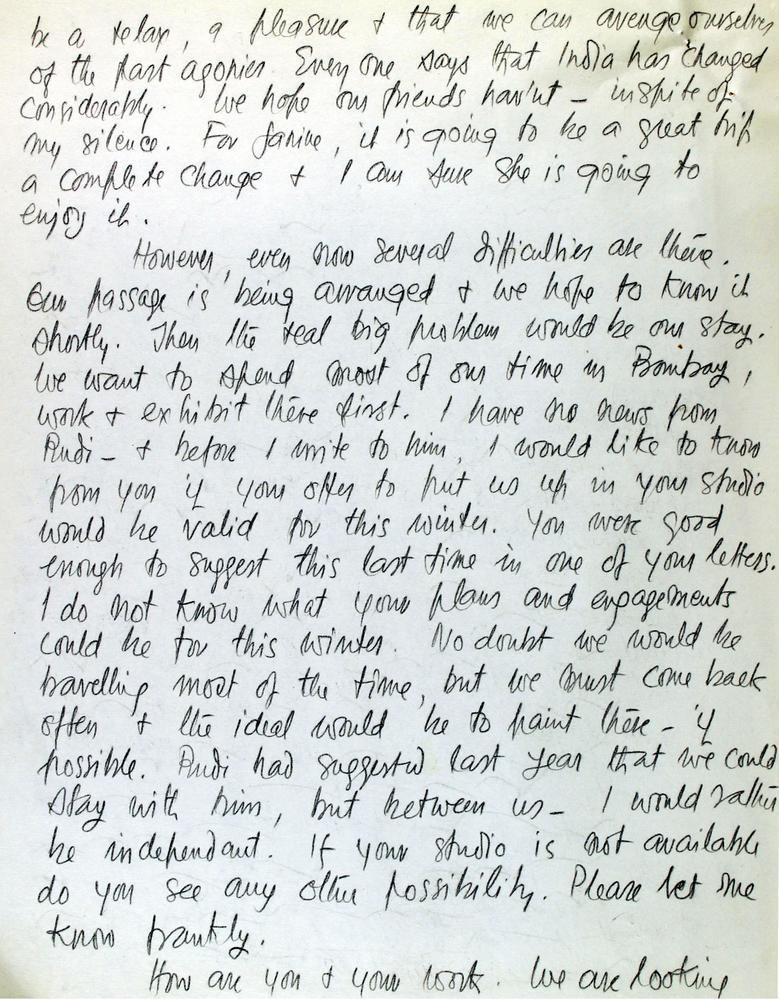 be a relax, a pleasure + that we can avenge ourselves
of the past agonies Every one says that India has changed
considerably. We hope our friends hav'nt - inspite of
my silence. For Janine, it is going to be a great trip
a complete change + I am sure she is going to
enjoy it.
However, even now several difficulties are there.
Our passage is being arranged + we hope to know it
shortly. Then the real big problem would be our stay.
We want to spend most of our time in Bombay,
work + exhibit there first. I have no news from
Rudi - + before I write to him, I would like to know
from you if your offer to put us up in your studio
would be valid for this winter. You were good
enough to suggest this last time in one of your letters.
I do not know what your plans and engagements
could be for this winter. No doubt we would be
travelling most of the time, but we must come back
often + the ideal would be to paint there - if
possible. Rudi had suggested last year that we could
stay with him, but between us - I would rather
be independant. If your studio is not available
do you see any other possibility. Please let me
know frankly.
How are you + your work. We are looking